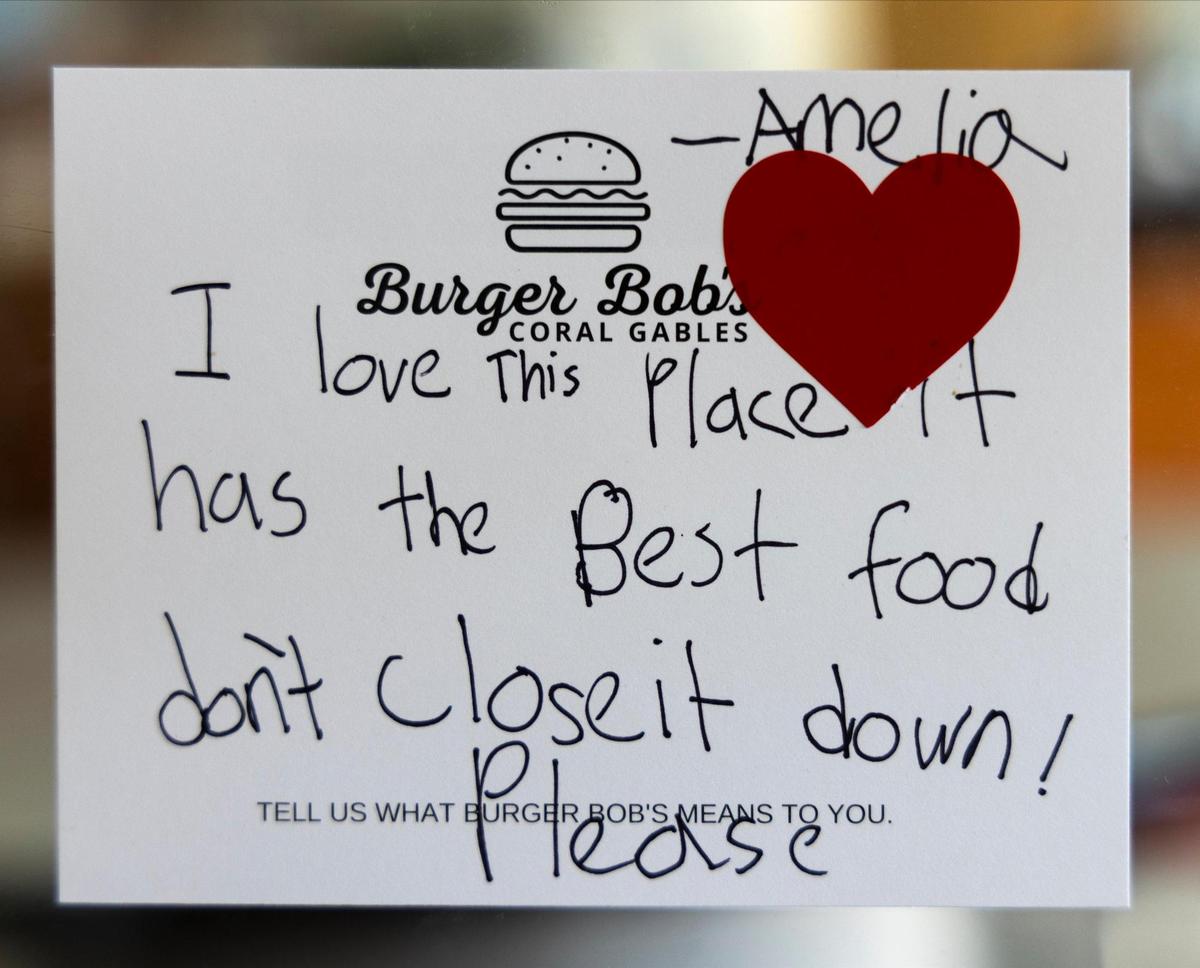 -Amelia
Burger Bob's
CORAL GABLES
I love This Place it
has the Best food
don't close it down!
Please
TELL US WHAT BURGER BOB'S MEANS TO YOU.